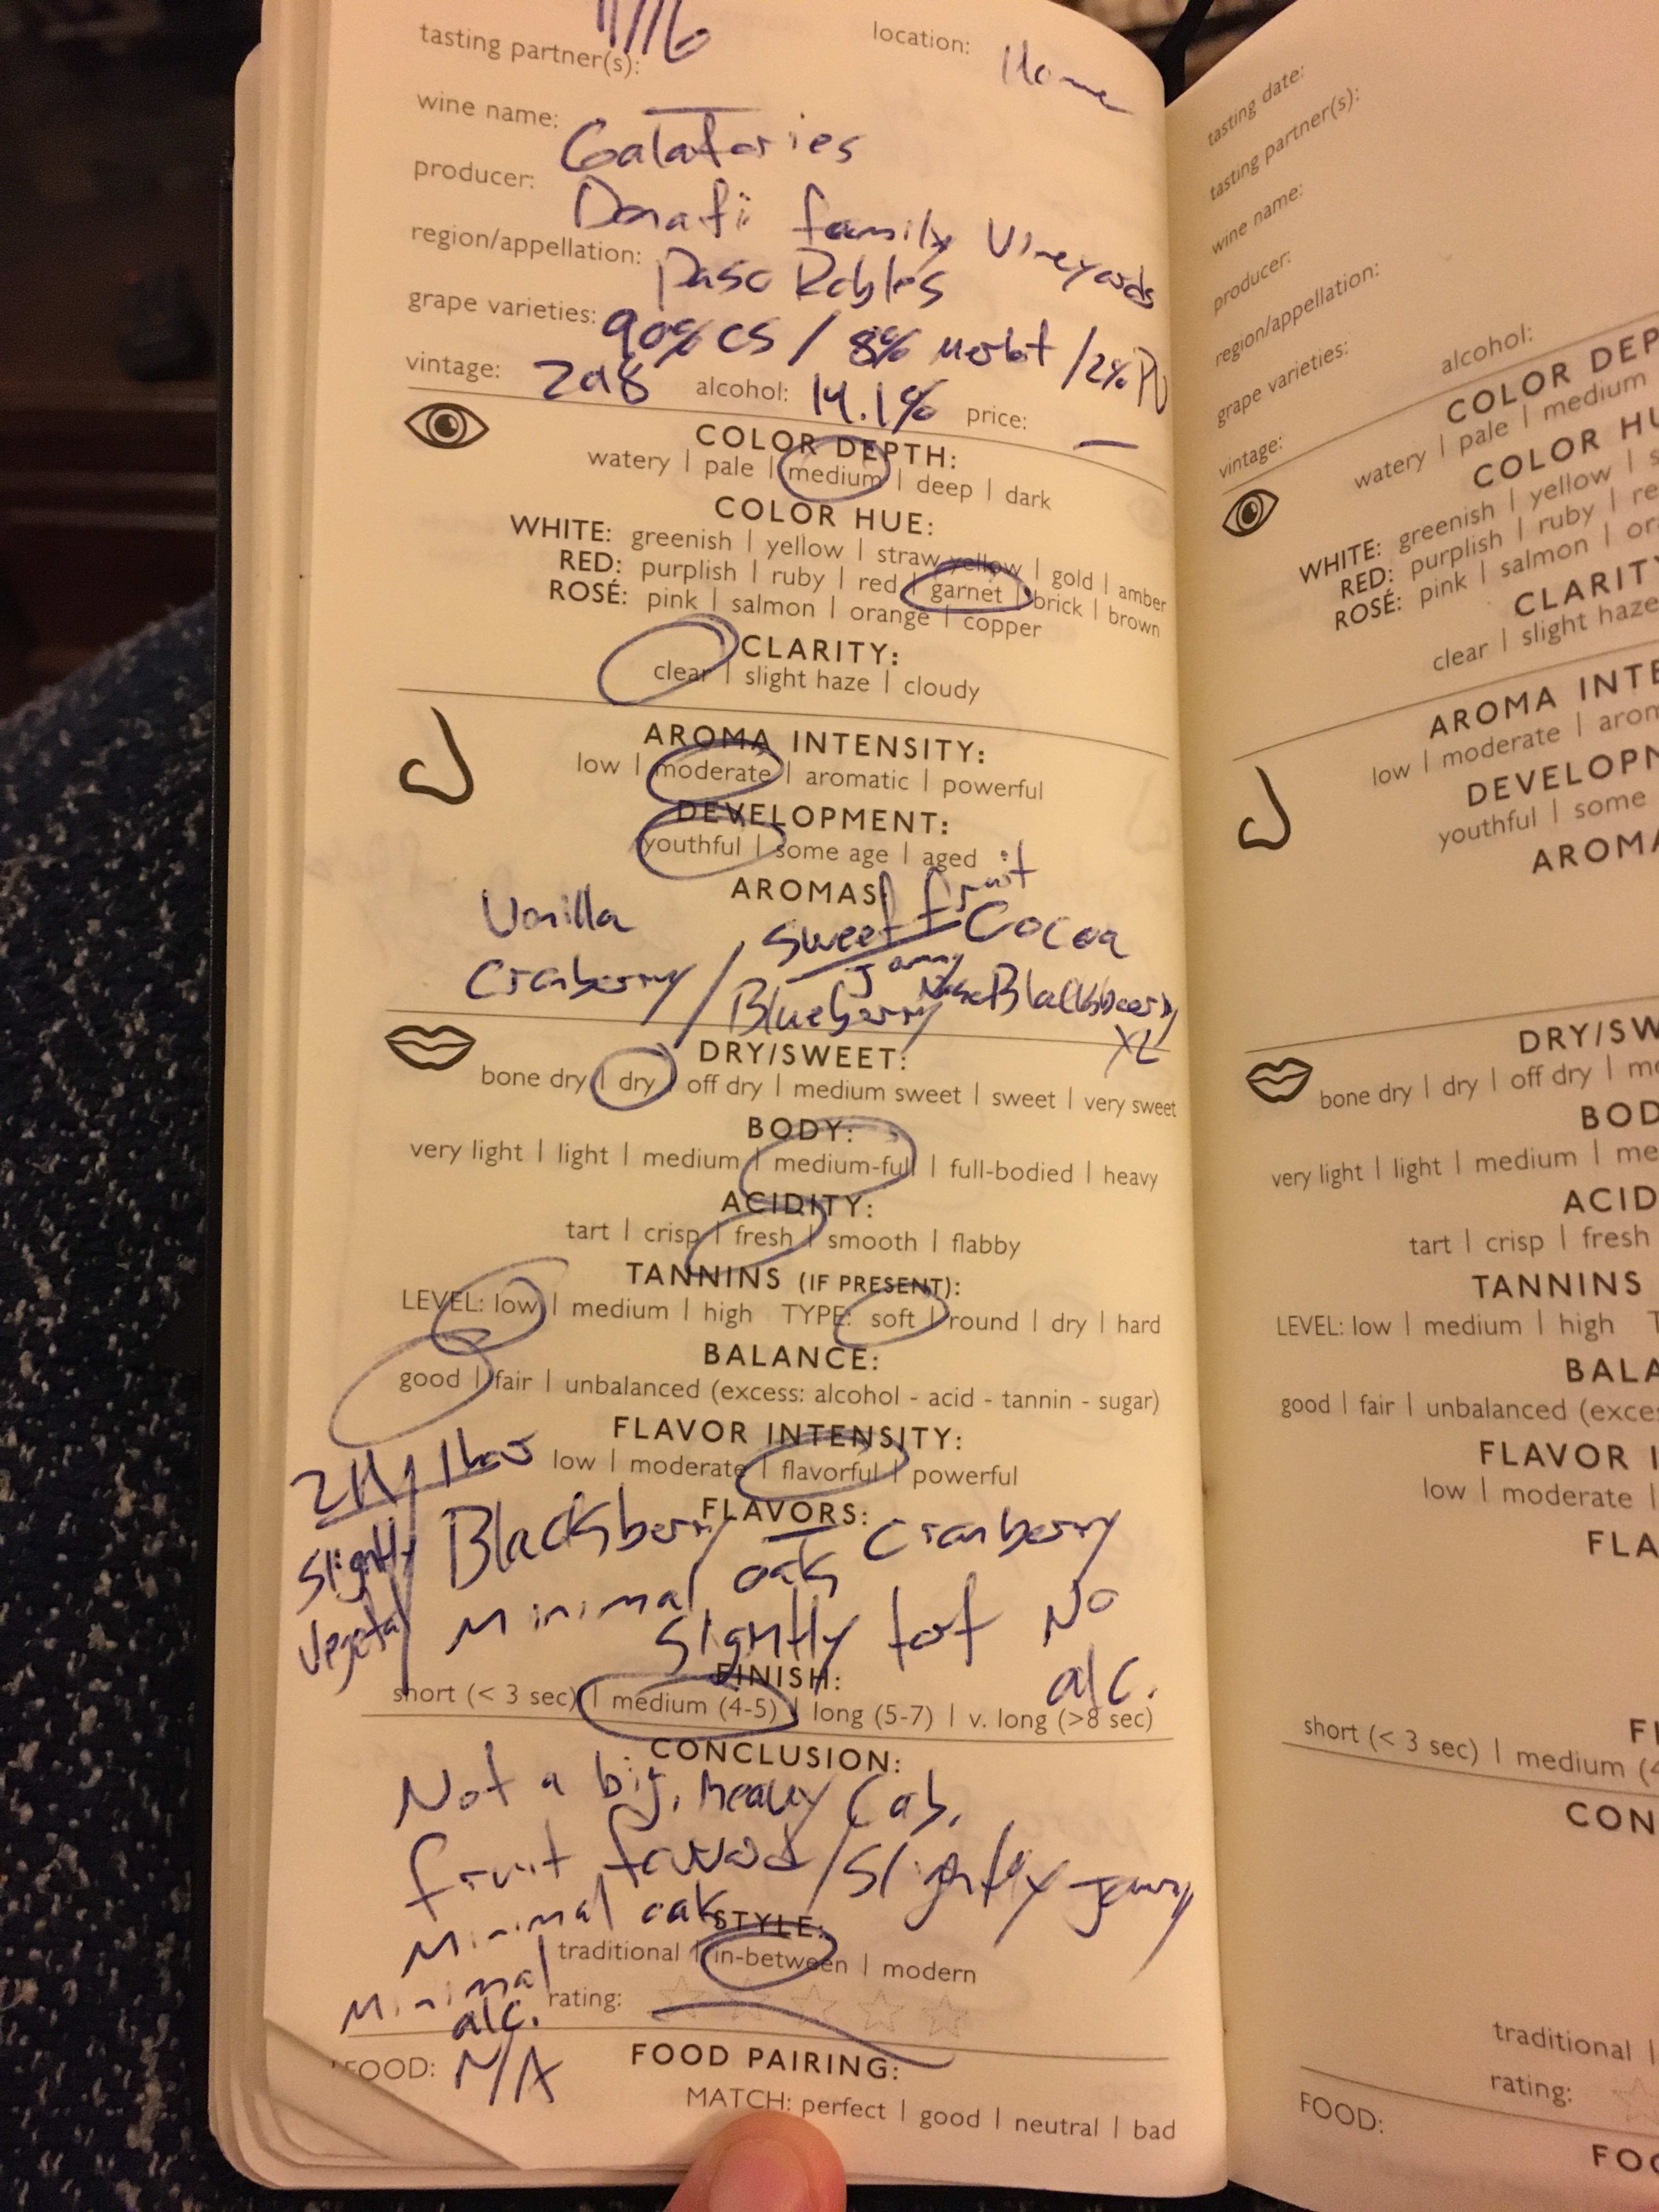 11/16
tasting partner(s): location: Home
wine name: Galatories
producer: Donati family Vineyards
region/appellation: Paso Robles
grape varieties: 90% CS / 8% Merlot / 2% PV
vintage: 2018 alcohol: 14.1% price: —
COLOR DEPTH:
watery | pale | medium | deep | dark
COLOR HUE:
WHITE: greenish | yellow | straw yellow | gold | amber
RED: purplish | ruby | red | garnet | brick | brown
ROSÉ: pink | salmon | orange | copper
CLARITY:
clear | slight haze | cloudy
AROMA INTENSITY:
low | moderate | aromatic | powerful
DEVELOPMENT:
youthful | some age | aged
AROMAS
Vanilla sweet fruit Cocoa
Cranberry / Jammy Nose
Blueberry Blacksberry
XL
DRY/SWEET:
bone dry | dry | off dry | medium sweet | sweet | very sweet
BODY:
very light | light | medium | medium-full | full-bodied | heavy
ACIDITY:
tart | crisp | fresh | smooth | flabby
TANNINS (IF PRESENT):
LEVEL: low | medium | high TYPE: soft | round | dry | hard
BALANCE:
good | fair | unbalanced (excess: alcohol - acid - tannin - sugar)
FLAVOR INTENSITY:
low | moderate | flavorful | powerful
FLAVORS:
Slightly Blacksberry oak Cranberry
Vegetal Minimal slightly tart No
alc.
FINISH:
short (< 3 sec) | medium (4-5) | long (5-7) | v. long (>8 sec)
CONCLUSION:
Not a big, heavy Cab.
fruit forward / slightly Jammy
Minimal oak
STYLE:
traditional | in-between | modern
Minimal
alc.
rating:
FOOD PAIRING:
FOOD: N/A
MATCH: perfect | good | neutral | bad
tasting date:
tasting partner(s):
wine name:
producer:
region/appellation:
grape varieties:
vintage: alcohol:
COLOR DEP
watery | pale | medium
COLOR HU
WHITE: greenish | yellow | s
RED: purplish | ruby | re
ROSÉ: pink | salmon | or
CLARITY
clear | slight haze
AROMA INTE
low | moderate | arom
DEVELOPM
youthful | some
AROMA
DRY/SW
bone dry | dry | off dry | me
BOD
very light | light | medium | me
ACID
tart | crisp | fresh
TANNINS
LEVEL: low | medium | high T
BALA
good | fair | unbalanced (exce
FLAVOR I
low | moderate |
FLA
FI
short (< 3 sec) | medium (4
CON
traditional |
rating:
FOOD:
FOO